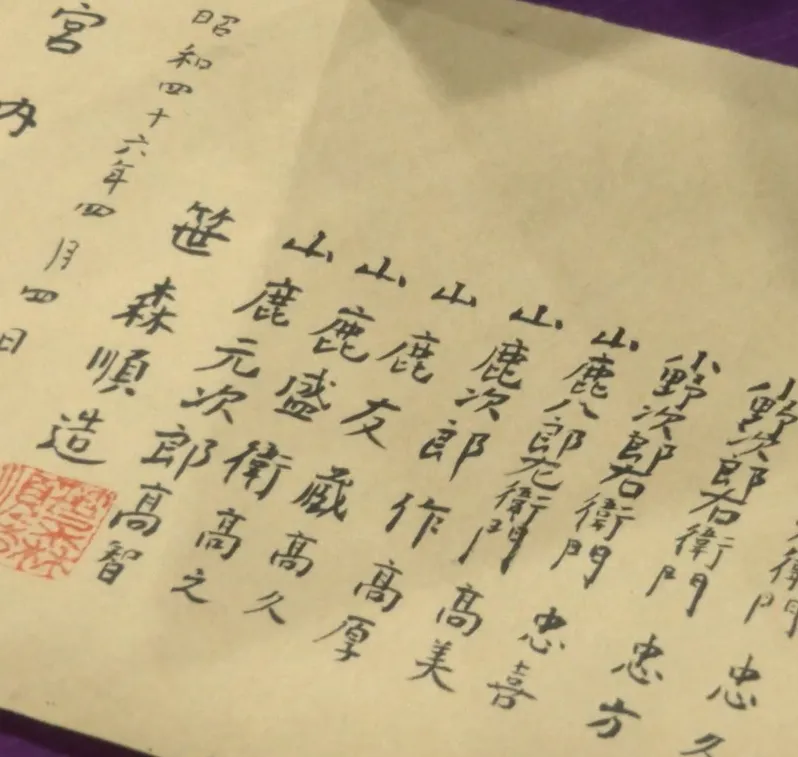 衛門 忠久
小野次郎右衛門 忠方
小野次郎右衛門 忠喜
山鹿八郎左衛門 高美
山鹿次郎作 高厚
山鹿友蔵 高久
山鹿盛衛 高之
山鹿元次郎 高智
笹森順造
昭和四十六年四月四日
宮内